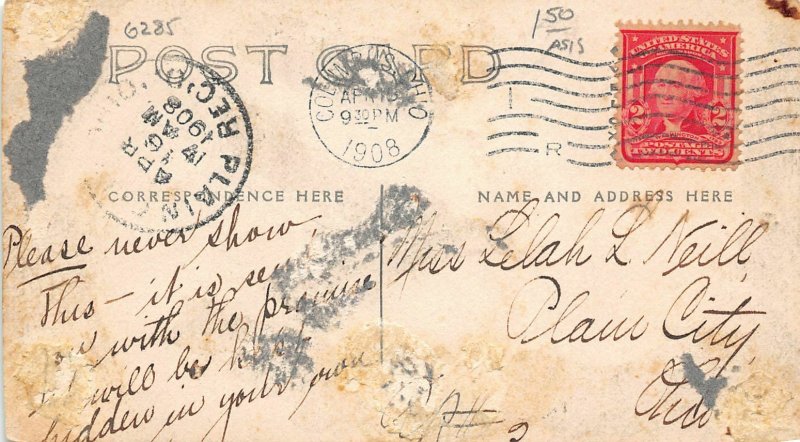 6285
1 50
ASIS
POST CARD
COLUMBUS, OHIO
APR 15
9 30 PM
1908
UNITED STATES OF AMERICA
2 2
POSTAGE
TWO CENTS
PLAIN
APR
16
AM
1908
REC'D
CORRESPONDENCE HERE
NAME AND ADDRESS HERE
Please never show
this – it is sent
you with the promise
it will be kept
hidden in your own
Miss Lelah L Neill
Plain City
Ohio